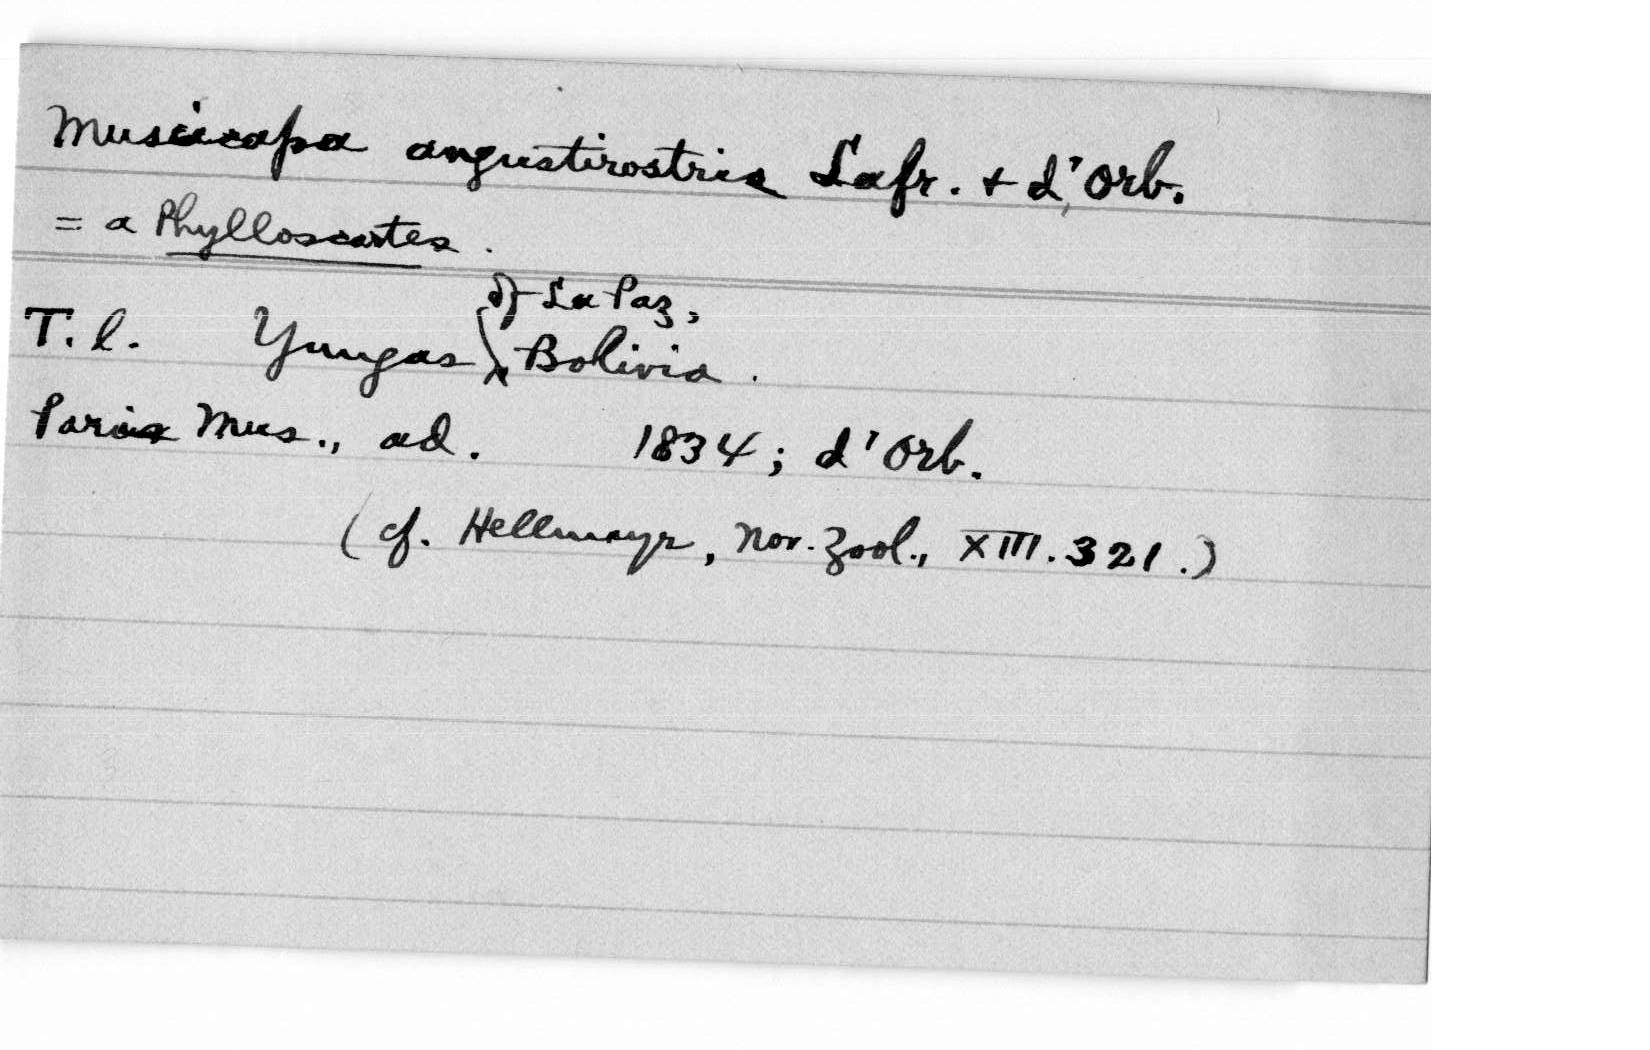 Muscicapa angustirostris Lafr. + d'Orb.
= a Phylloscartes.
T. l. Yungas of La Paz, Bolivia.
Paris Mus., ad. 1834; d'Orb.
(cf. Hellmayr, Nov. Zool., XIII. 321.)